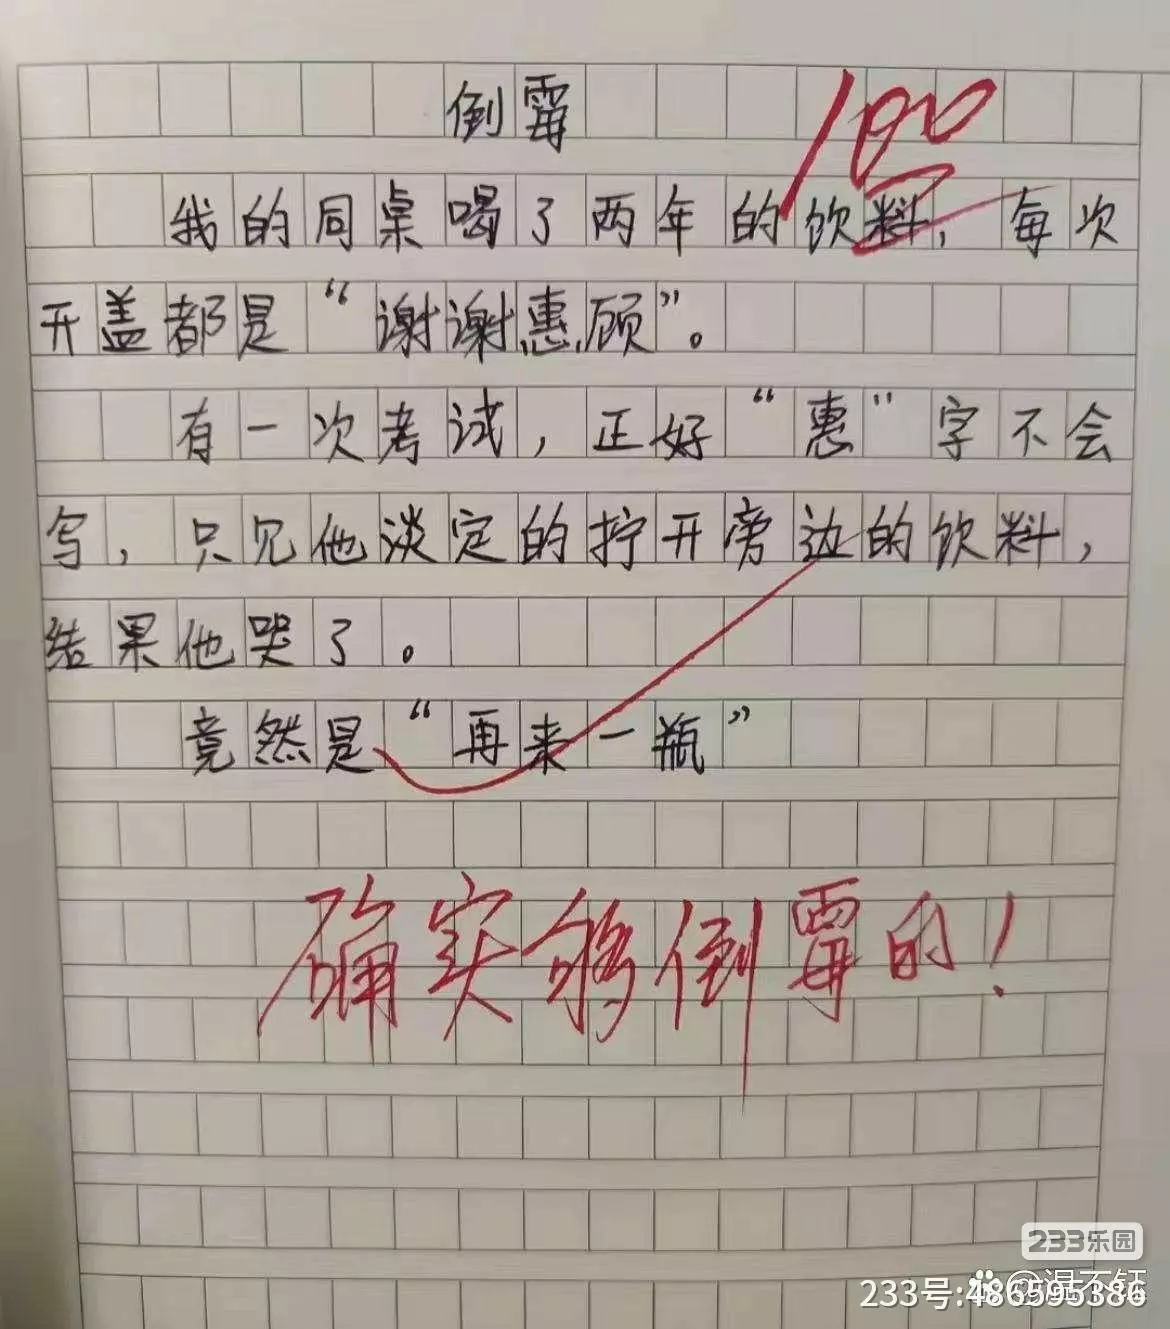 倒霉
100
我的同桌喝了两年的饮料，每次
开盖都是“谢谢惠顾”。
有一次考试，正好“惠”字不会
写，只见他淡定的拧开旁边的饮料，
结果他哭了。
竟然是“再来一瓶”
确实够倒霉的！
233乐园
233号:486595386